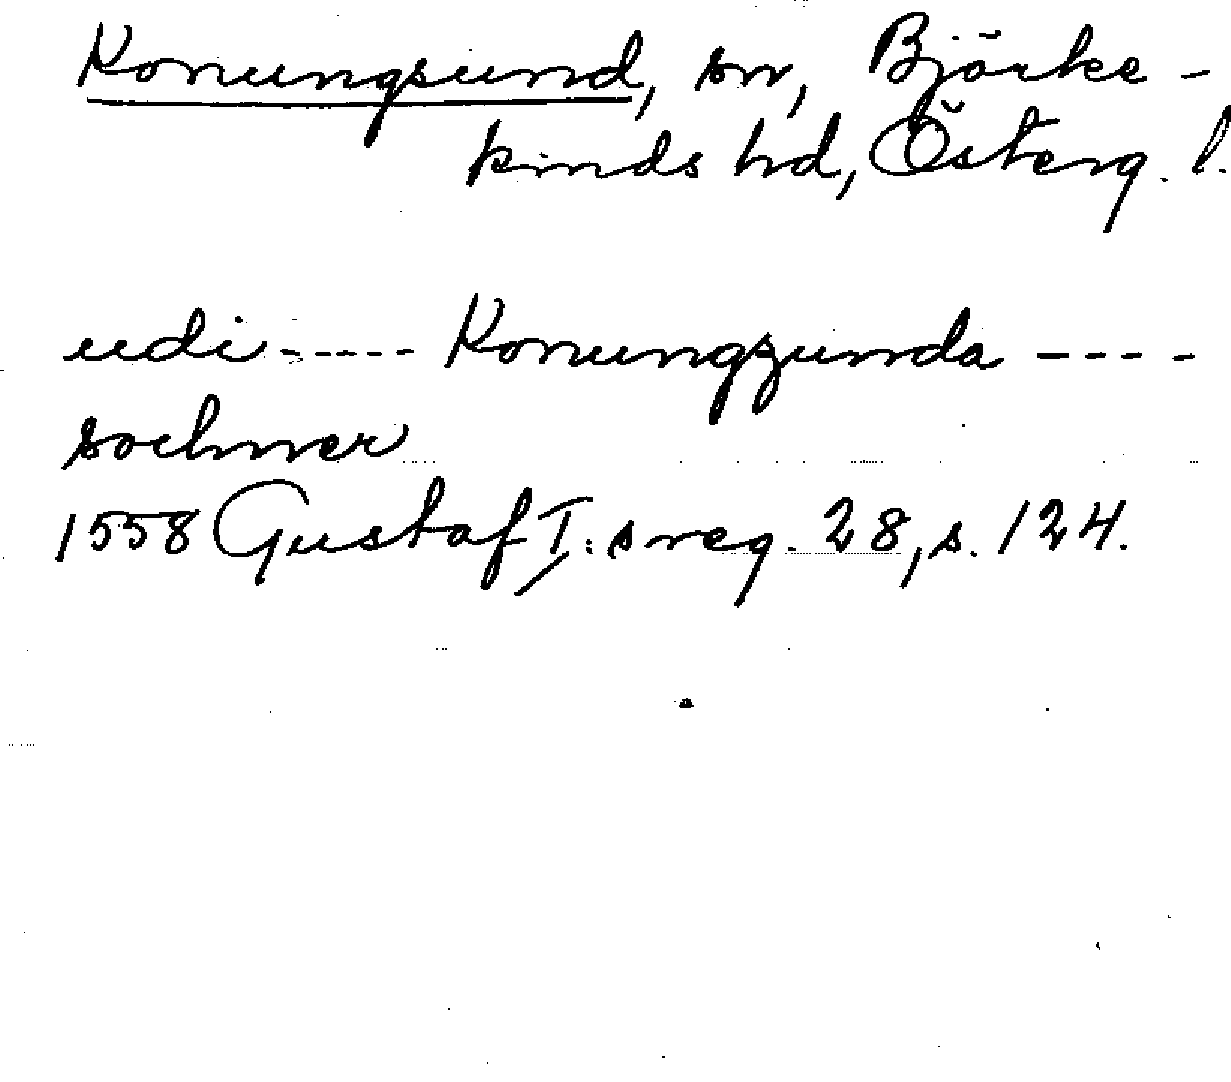 Konungsund, sn, Björke-
kinds hd, Österg. l.
udi ---- Konungzunda ----
sochner
1558 Gustaf I:s reg. 28, s. 124.